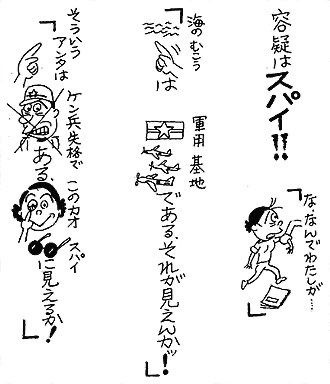 容疑はスパイ!!
「ななんでわたしが…」
「海のむこうは
軍用基地
である.それが見えんかッ!」
「そういうアンタは
ケン兵失格である.
このカオ スパイに見えるか!」